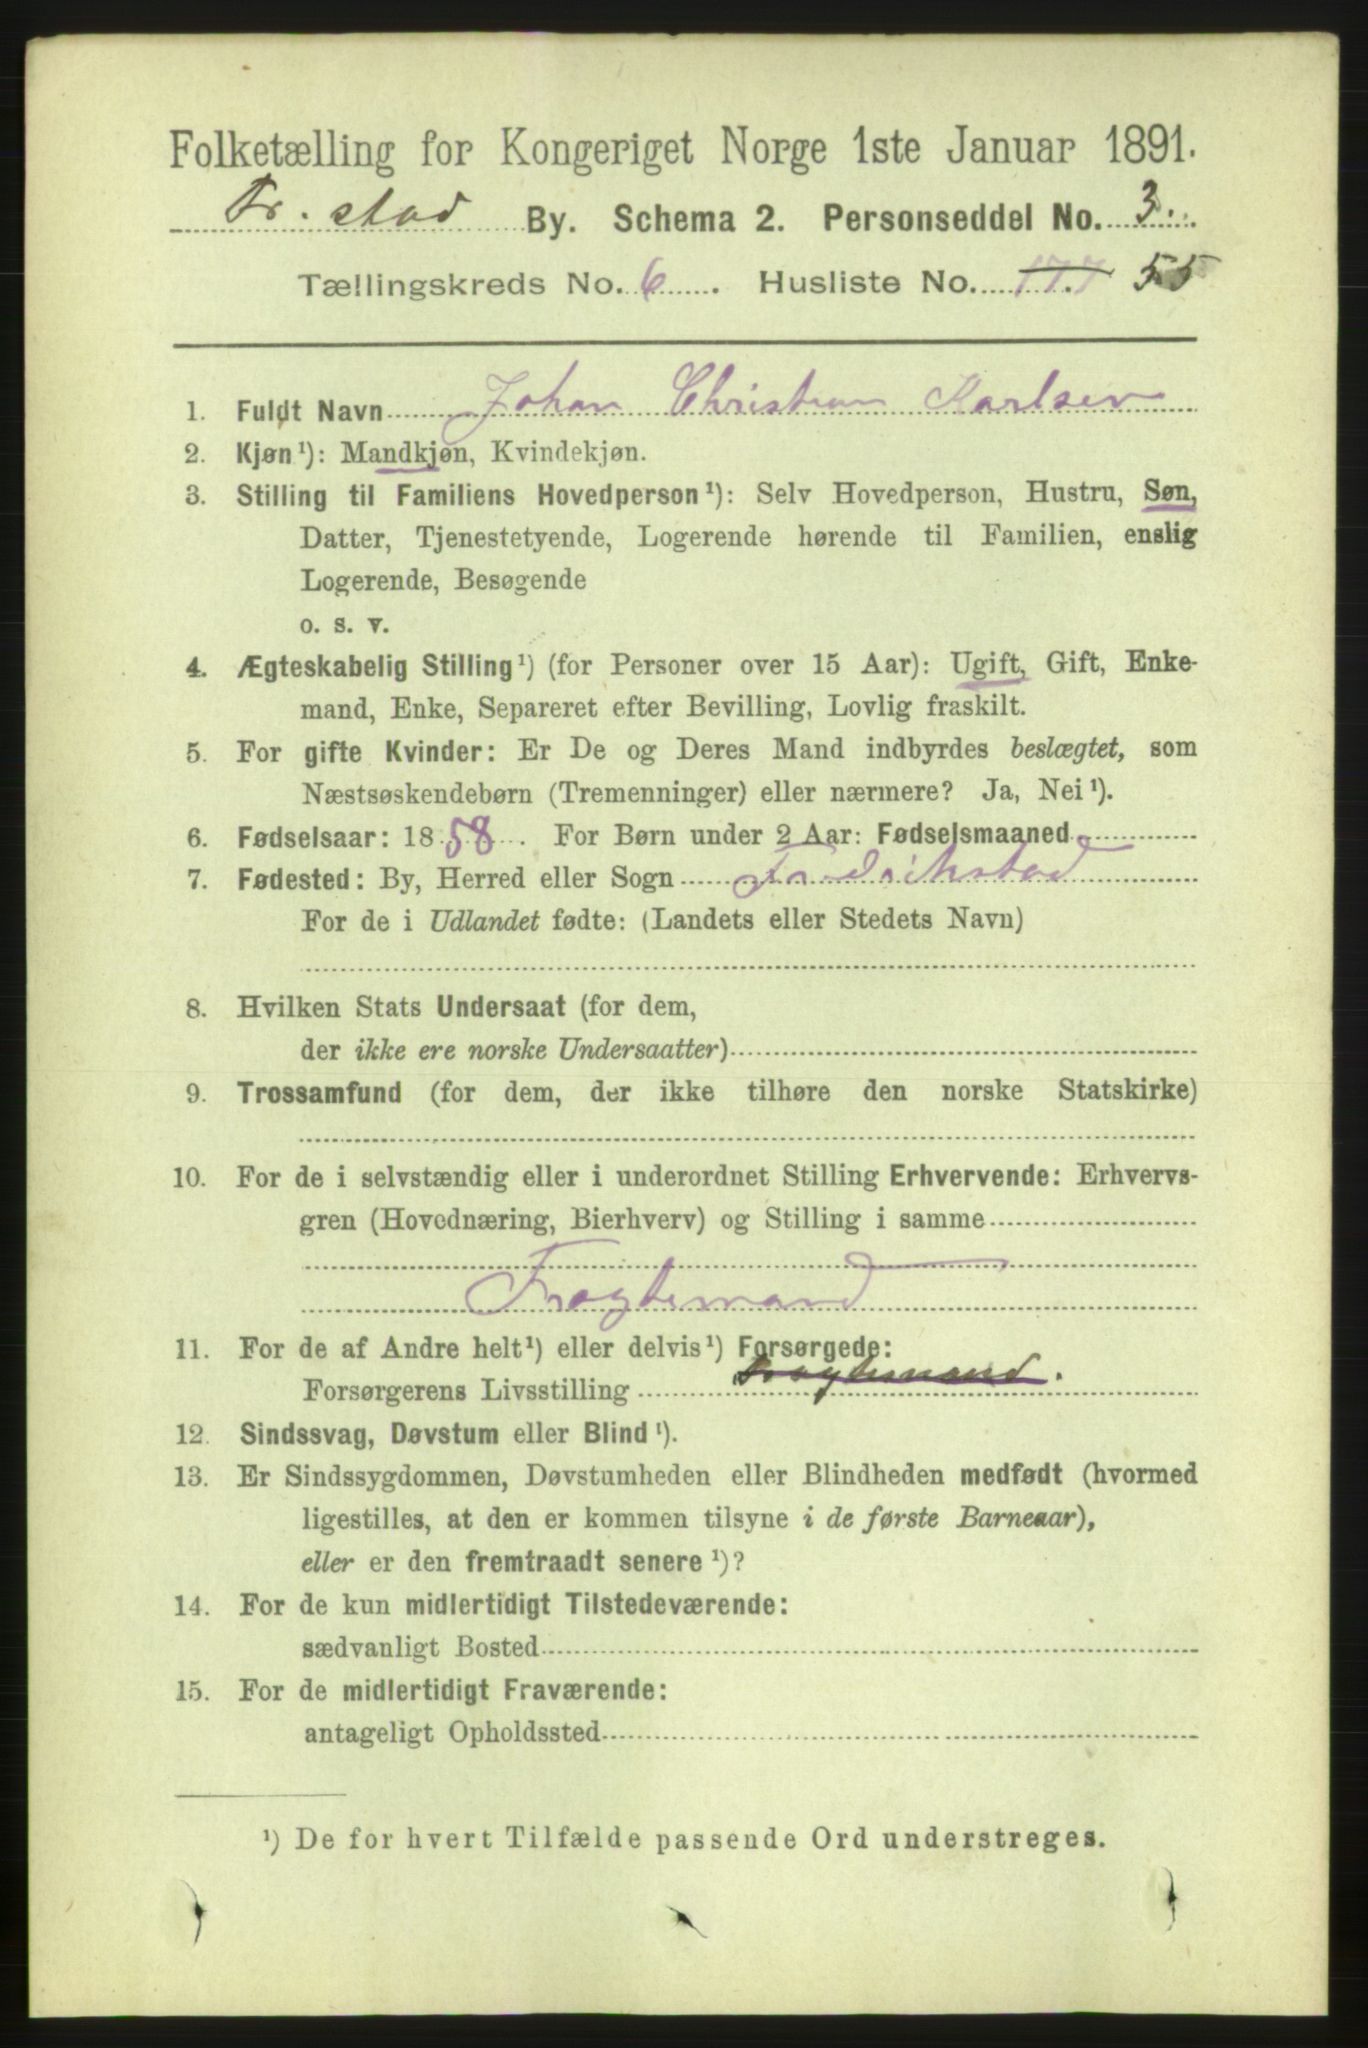 Folketælling for Kongeriget Norge 1ste Januar 1891.
Fr.stad By. Schema 2. Personseddel No. 3
Tællingskreds No. 6. Husliste No. 177 55
1. Fuldt Navn Johan Christian Karlsen
2. Kjøn¹): Mandkjøn, Kvindekjøn.
3. Stilling til Familiens Hovedperson¹): Selv Hovedperson, Hustru, Søn,
Datter, Tjenestetyende, Logerende hørende til Familien, enslig
Logerende, Besøgende
o. s. v.
4. Ægteskabelig Stilling¹) (for Personer over 15 Aar): Ugift, Gift, Enke-
mand, Enke, Separeret efter Bevilling, Lovlig fraskilt.
5. For gifte Kvinder: Er De og Deres Mand indbyrdes beslægtet, som
Næstsøskendebørn (Tremenninger) eller nærmere? Ja, Nei¹).
6. Fødselsaar: 1858. For Børn under 2 Aar: Fødselsmaaned
7. Fødested: By, Herred eller Sogn Fredrikstad
For de i Udlandet fødte: (Landets eller Stedets Navn)
8. Hvilken Stats Undersaat (for dem,
der ikke ere norske Undersaatter)
9. Trossamfund (for dem, der ikke tilhøre den norske Statskirke)
10. For de i selvstændig eller i underordnet Stilling Erhvervende: Erhvervs-
gren (Hovednæring, Bierhverv) og Stilling i samme
Fragtemand
11. For de af Andre helt¹) eller delvis¹) Forsørgede:
Forsørgerens Livsstilling Fragtemand.
12. Sindssvag, Døvstum eller Blind¹).
13. Er Sindssygdommen, Døvstumheden eller Blindheden medfødt (hvormed
ligestilles, at den er kommen tilsyne i de første Barneaar),
eller er den fremtraadt senere¹)?
14. For de kun midlertidigt Tilstedeværende:
sædvanligt Bosted
15. For de midlertidigt Fraværende:
antageligt Opholdssted
¹) De for hvert Tilfælde passende Ord understreges.